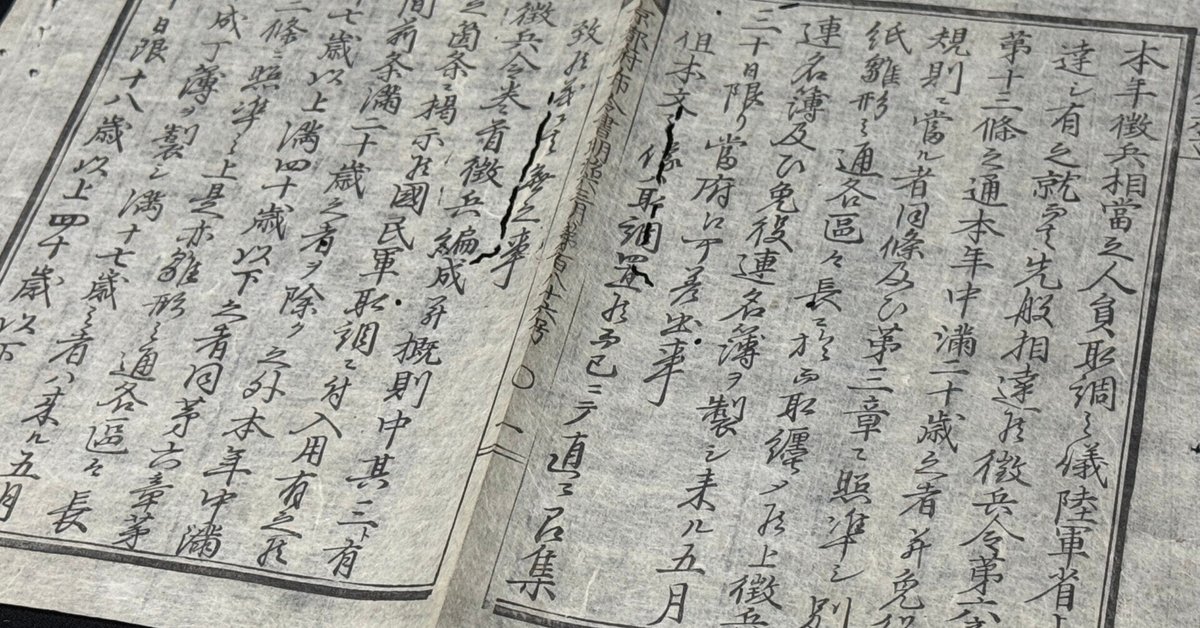 本年徴兵相當之人員取調之儀陸軍省
達シ有之就而者先般相達候徴兵令第六
第十三條之通本年中満二十歳之者并免役
規則ニ當ル者同條及ヒ第三章ニ照準シ別
紙雛形之通各區々長ニ於而取纏メ候上徴兵
連名簿及ヒ免役連名簿ヲ製シ来ル五月
三十日限リ當府江可差出事
但本文之像取調置候而已ニテ直ニ召集
致候儀ニ者無之事
京都府布令書明治六三月第百八十六号
徴兵令巻首徴兵編成并概則中其三ニ有
之箇条ニ掲示候國民軍取調ニ付入用有之候
間前条満二十歳之者ヲ除ク之外本年中満
十七歳以上満四十歳以下之者同第六章第
二條ニ照準シ上是亦雛形之通各區々長
成丁簿ヲ製シ満十七歳之者ハ来ル五月
日限十八歳以上四十歳以下